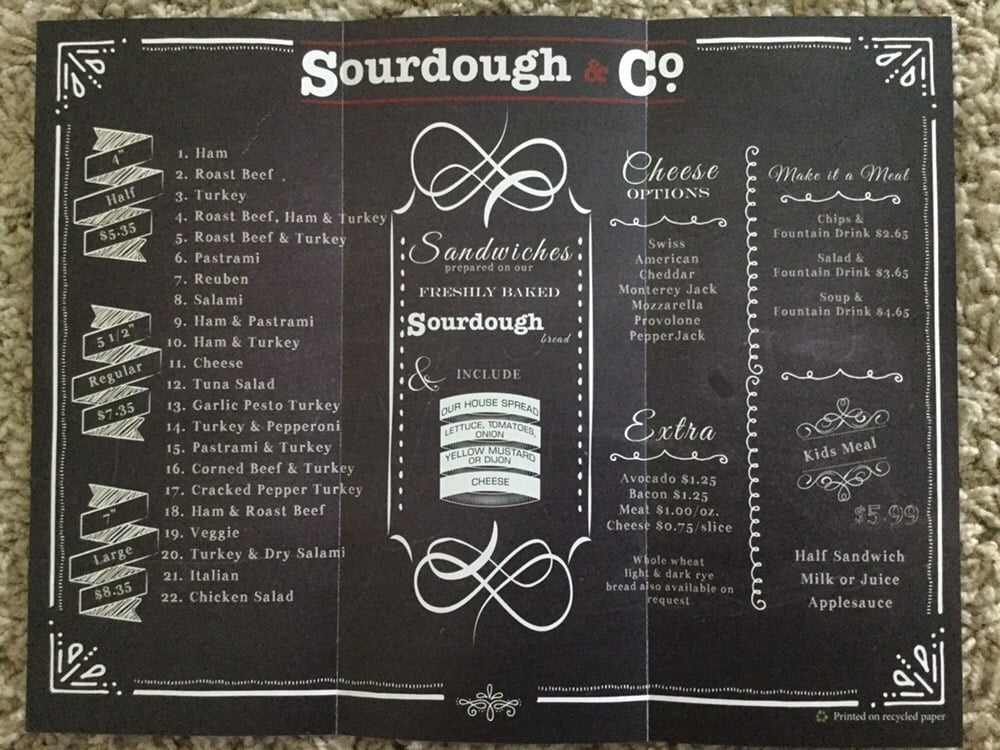 Sourdough & Co.
4"
Half
$5.35
5 1/2"
Regular
$7.35
7"
Large
$8.35
1. Ham
2. Roast Beef
3. Turkey
4. Roast Beef, Ham & Turkey
5. Roast Beef & Turkey
6. Pastrami
7. Reuben
8. Salami
9. Ham & Pastrami
10. Ham & Turkey
11. Cheese
12. Tuna Salad
13. Garlic Pesto Turkey
14. Turkey & Pepperoni
15. Pastrami & Turkey
16. Corned Beef & Turkey
17. Cracked Pepper Turkey
18. Ham & Roast Beef
19. Veggie
20. Turkey & Dry Salami
21. Italian
22. Chicken Salad
Sandwiches
prepared on our
FRESHLY BAKED
Sourdough
bread
& INCLUDE
OUR HOUSE SPREAD
LETTUCE, TOMATOES,
ONION
YELLOW MUSTARD
OR DIJON
CHEESE
Cheese
OPTIONS
Swiss
American
Cheddar
Monterey Jack
Mozzarella
Provolone
PepperJack
Extra
Avocado $1.25
Bacon $1.25
Meat $1.00/oz.
Cheese $0.75/slice
Whole wheat
light & dark rye
bread also available on
request
Make it a Meal
Chips &
Fountain Drink $2.65
Salad &
Fountain Drink $3.65
Soup &
Fountain Drink $4.65
Kids Meal
$5.99
Half Sandwich
Milk or Juice
Applesauce
Printed on recycled paper